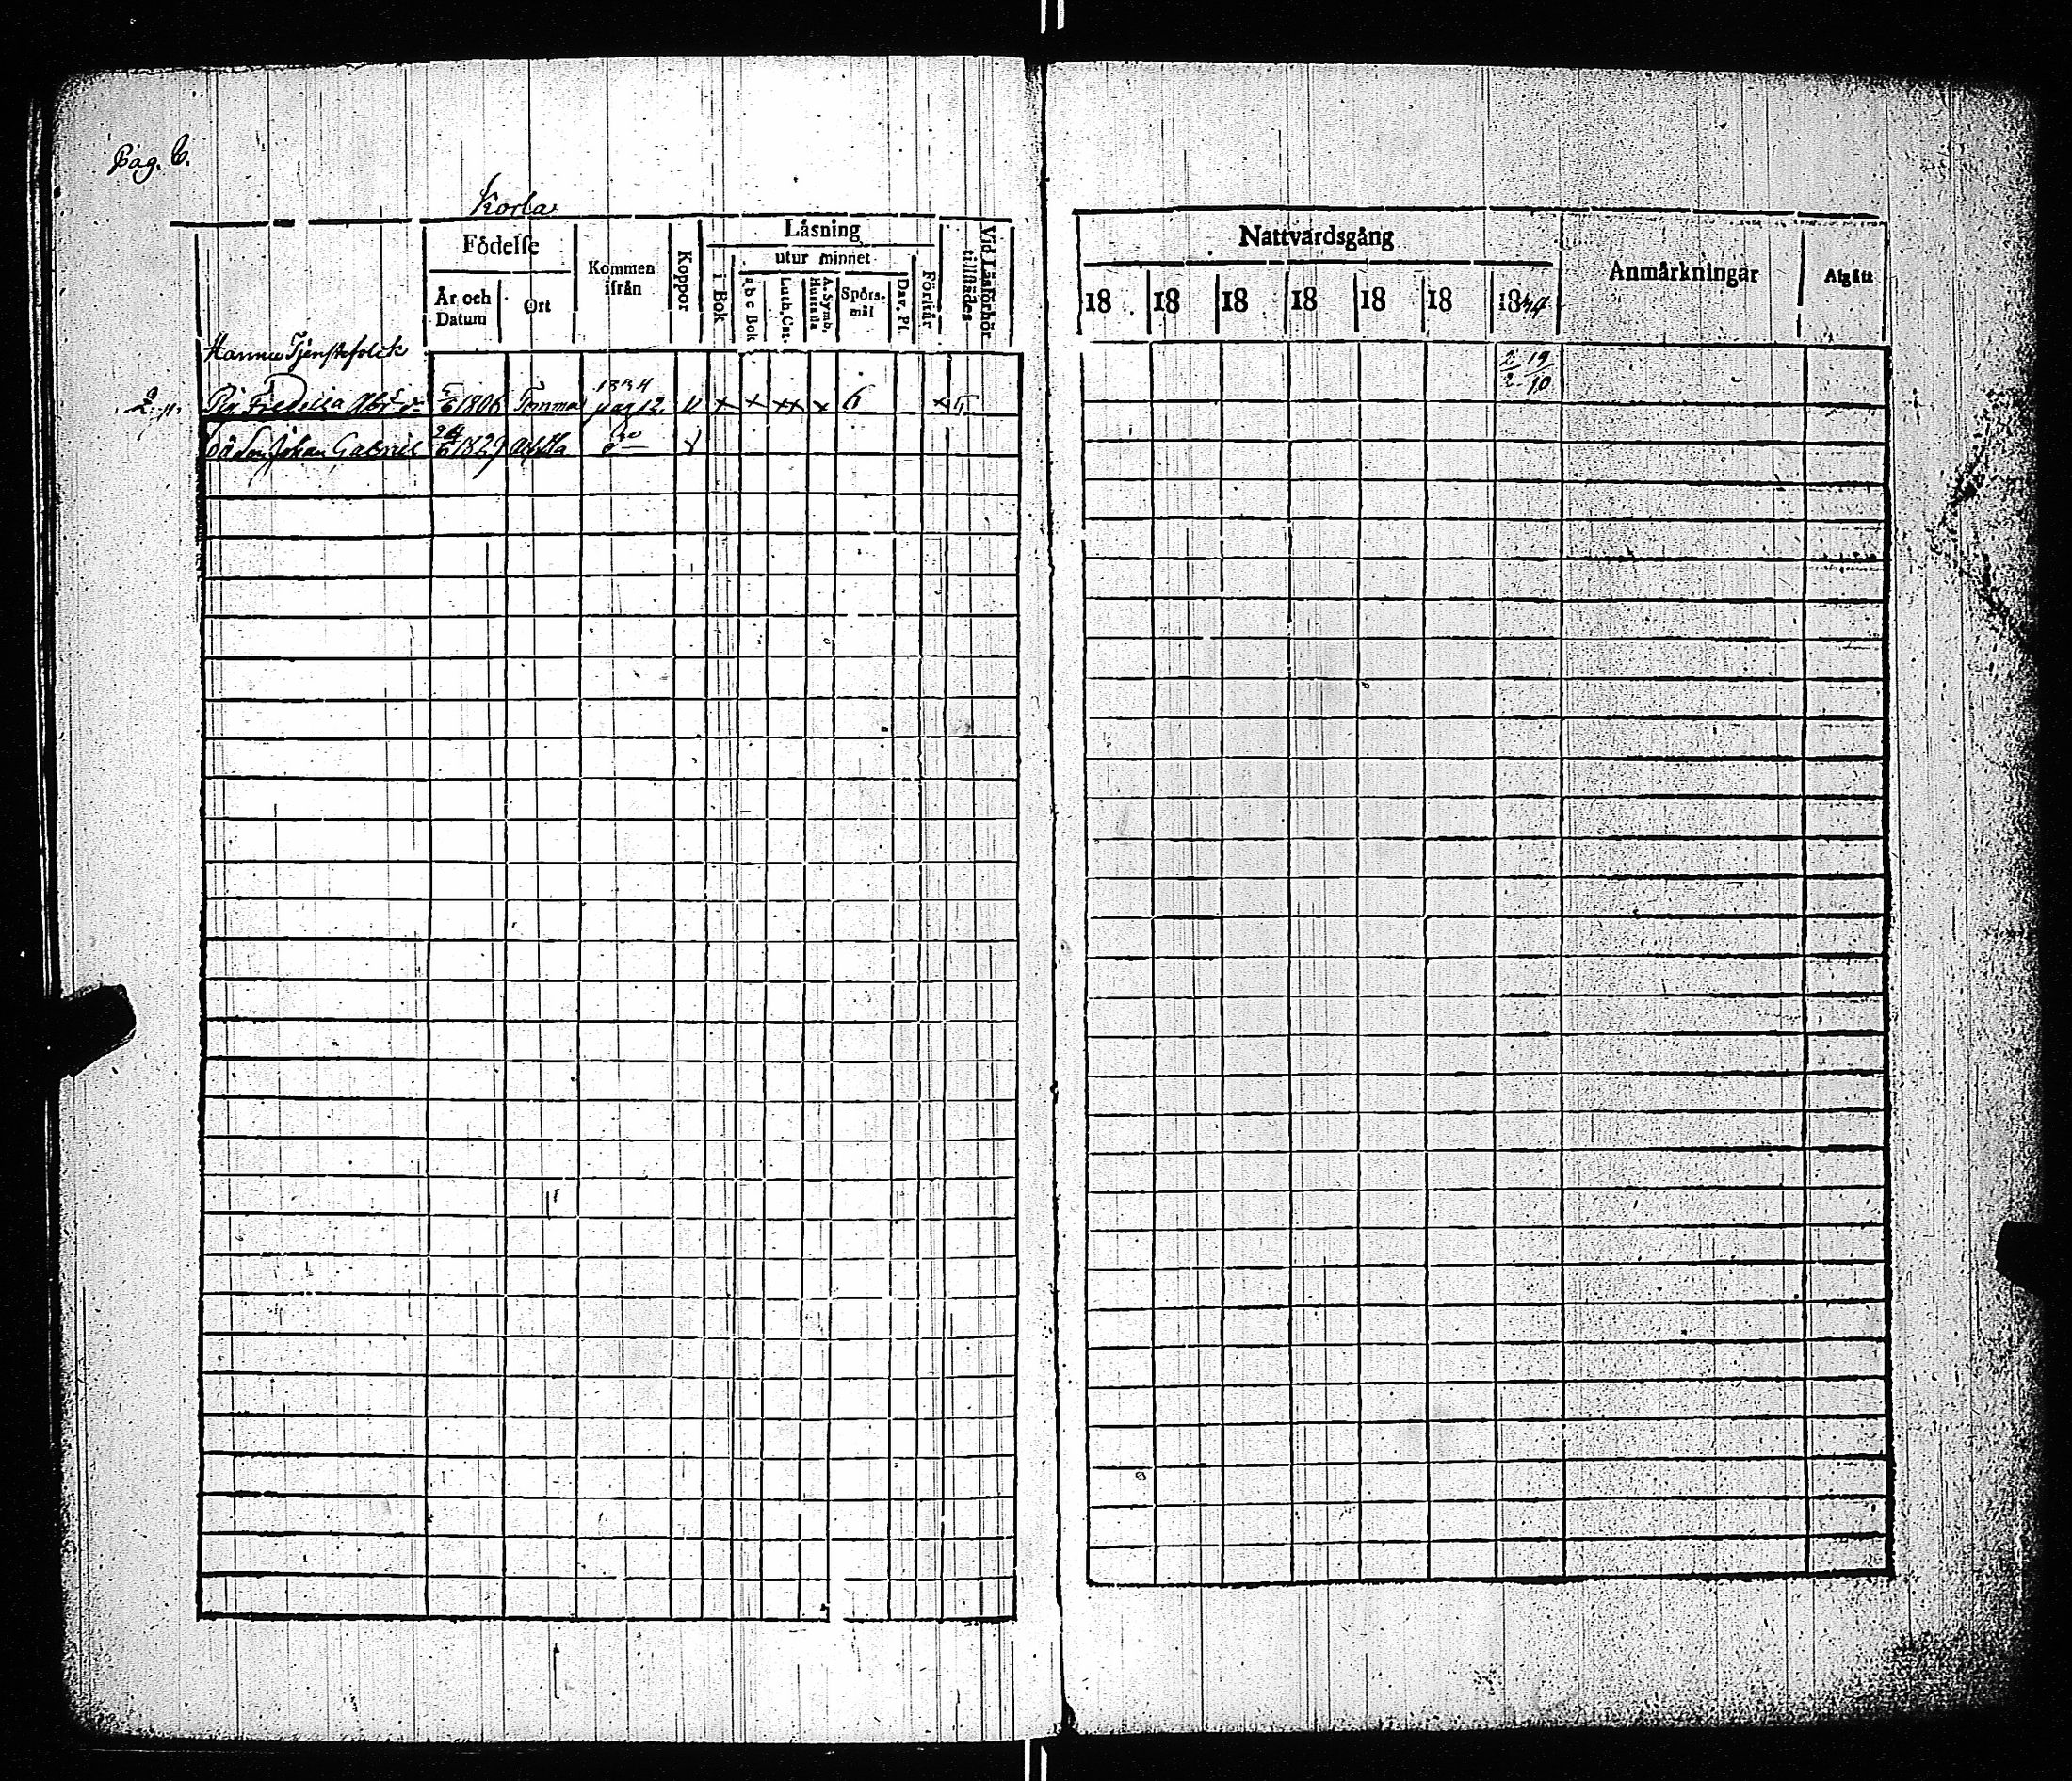 Pag. 6.
Korla
Födelse
År och Datum
Ort
Kommen ifrån
Koppor
Läsning
i Bok
utur minnet
a b c Bok
Luth. Cat.
A. Symb. Hustafla
Spörsmål
Dav. Pf.
Förstår
Vid Läsförhör tillstädes
Hannu Tjenstefolck
2. p. Pig. Fredrica Abr. dr 5/6 1806 Temma 1834 pag 12. V x x xx x 6 x
då Son Johan Gabriel 24/6 1829 do V
Nattvardsgång
18 18 18 18 18 18 1834
Anmärkningar
Afgått
2/2 19/10